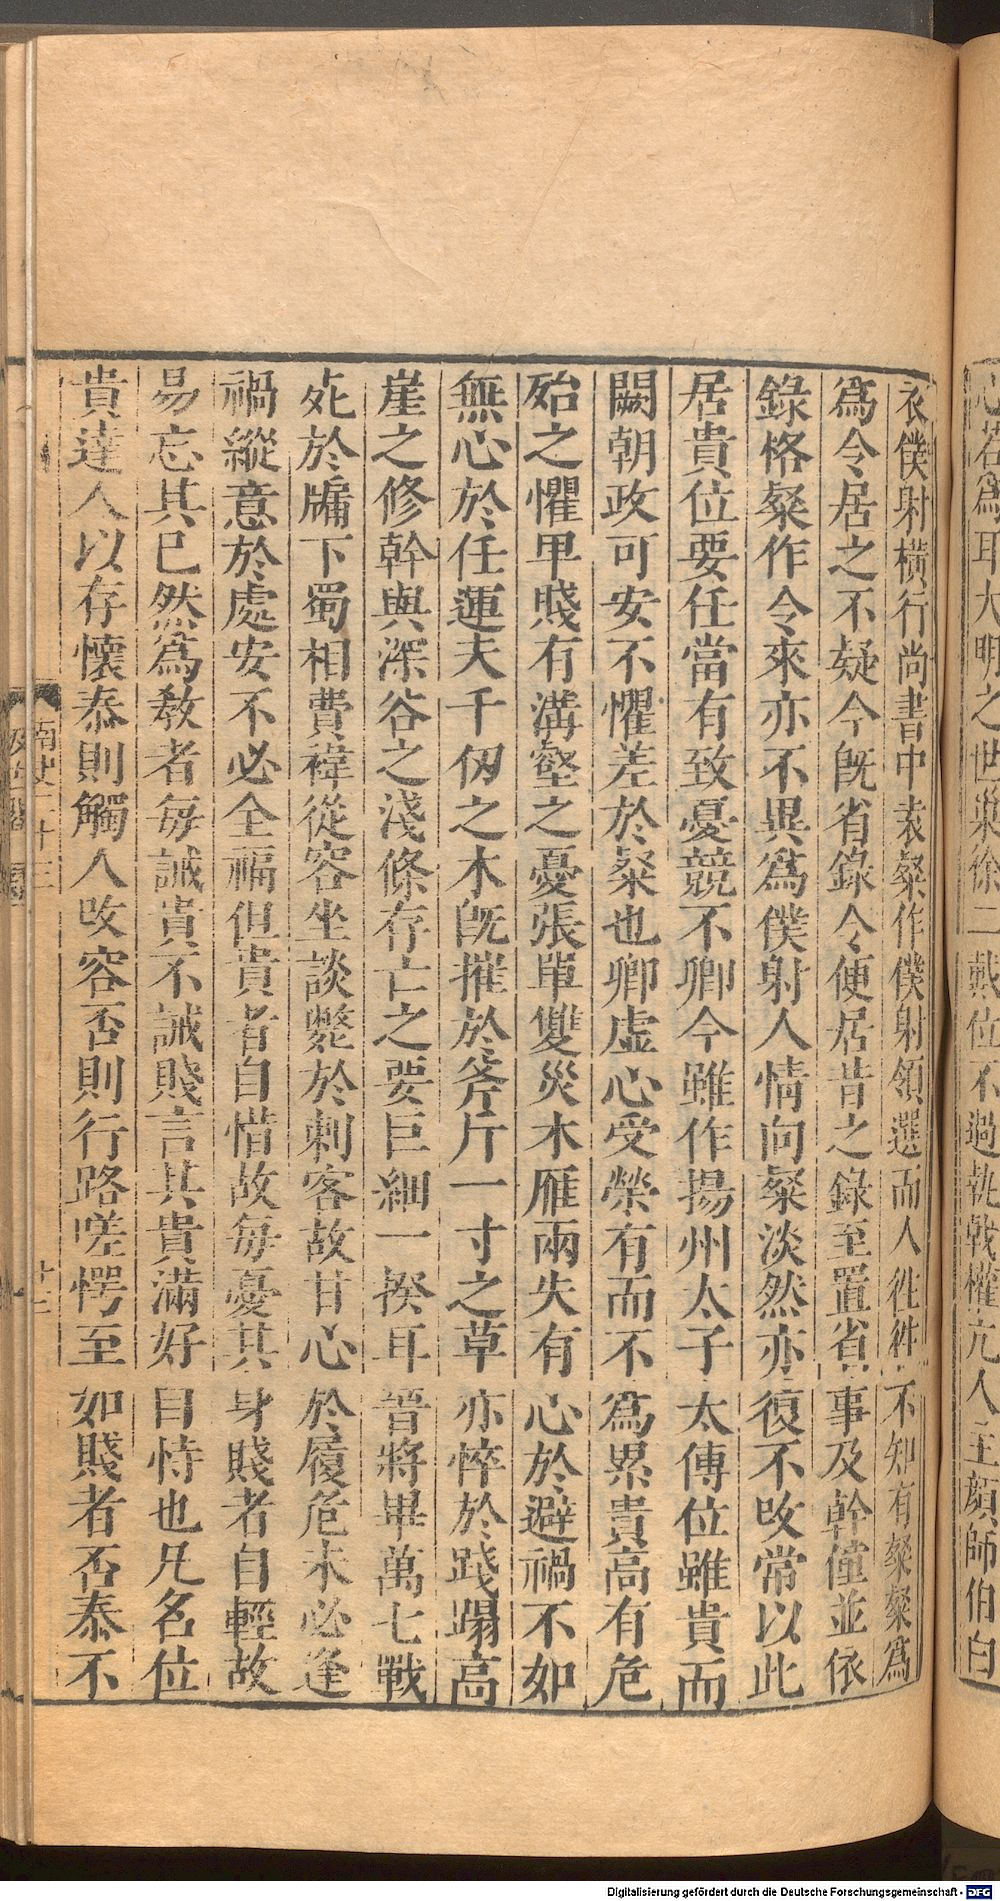 心若爲耳大明之世巢徐二戴位不過執戟權亢人主顏師伯白
衣僕射橫行尚書中袁粲作僕射領選而人往往不知有粲粲爲
爲令居之不疑今旣省錄令便居昔之錄至置省事及幹僮並依
錄格粲作令來亦不異爲僕射人情向粲淡然亦復不攺常以此
居貴位要任當有致憂競不卿今雖作揚州太子太傅位雖貴而
闕朝政可安不懼差於粲也卿虛心受榮有而不爲累貴高有危
殆之懼甲賤有溝壑之憂張單雙災木雁兩失有心於避禍不如
無心於任運夫千仭之木旣摧於斧斤一寸之草亦悴於踐蹋高
崖之修幹與深谷之淺條存亡之要巨細一揆耳晉將畢萬七戰
死於牖下蜀相費禕從容坐談斃於刺客故甘心於履危未必逢
禍縱意於處安不必全福但貴者自惜故每憂其身賤者自輕故
易忘其巳然爲敎者每誡貴不誡賤言其貴滿好自恃也凡名位
貴達人以存懷泰則觸人攺容否則行路嗟愕至如賤者否泰不
南史二十三
Digitalisierung gefördert durch die Deutsche Forschungsgemeinschaft - DFG